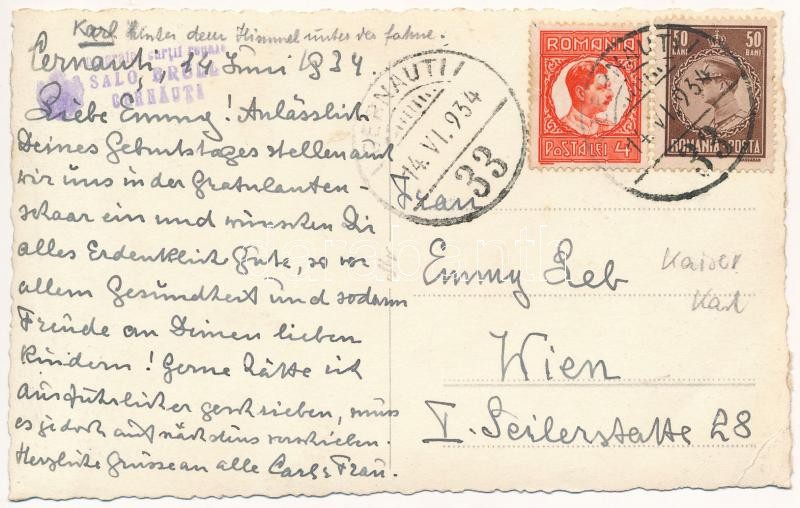 Karl hinter dem Himmel unter der Fahne.
Cernauti, 14 Juni 1934
cartii
SALO
CERNĂUTA
Liebe Emmy! Anlässlich
Deines Geburtstages stellen auch
wir uns in der Gratulanten-
schaar ein und wünschen Dir
alles Erdenklich Gute, so vor
allem Gesundheit und sodann
Freude an Deinen lieben
Kindern! Gerne hätte ich
ausführlicher geschrieben, muss
es jedoch auf nächstens verschieben.
Herzliche Grüsse an alle Carl & Frau.
CERNAUTI
14.VI.934
33
ROMANIA
POSTA LEI 4
50 BANI 50 BANI
ROMANIA-POSTA
CERNAUTI
14.VI.934
33
Frau
Emmy Leb
Wien
I. Seilerstatte 28
Kaiser
Karl